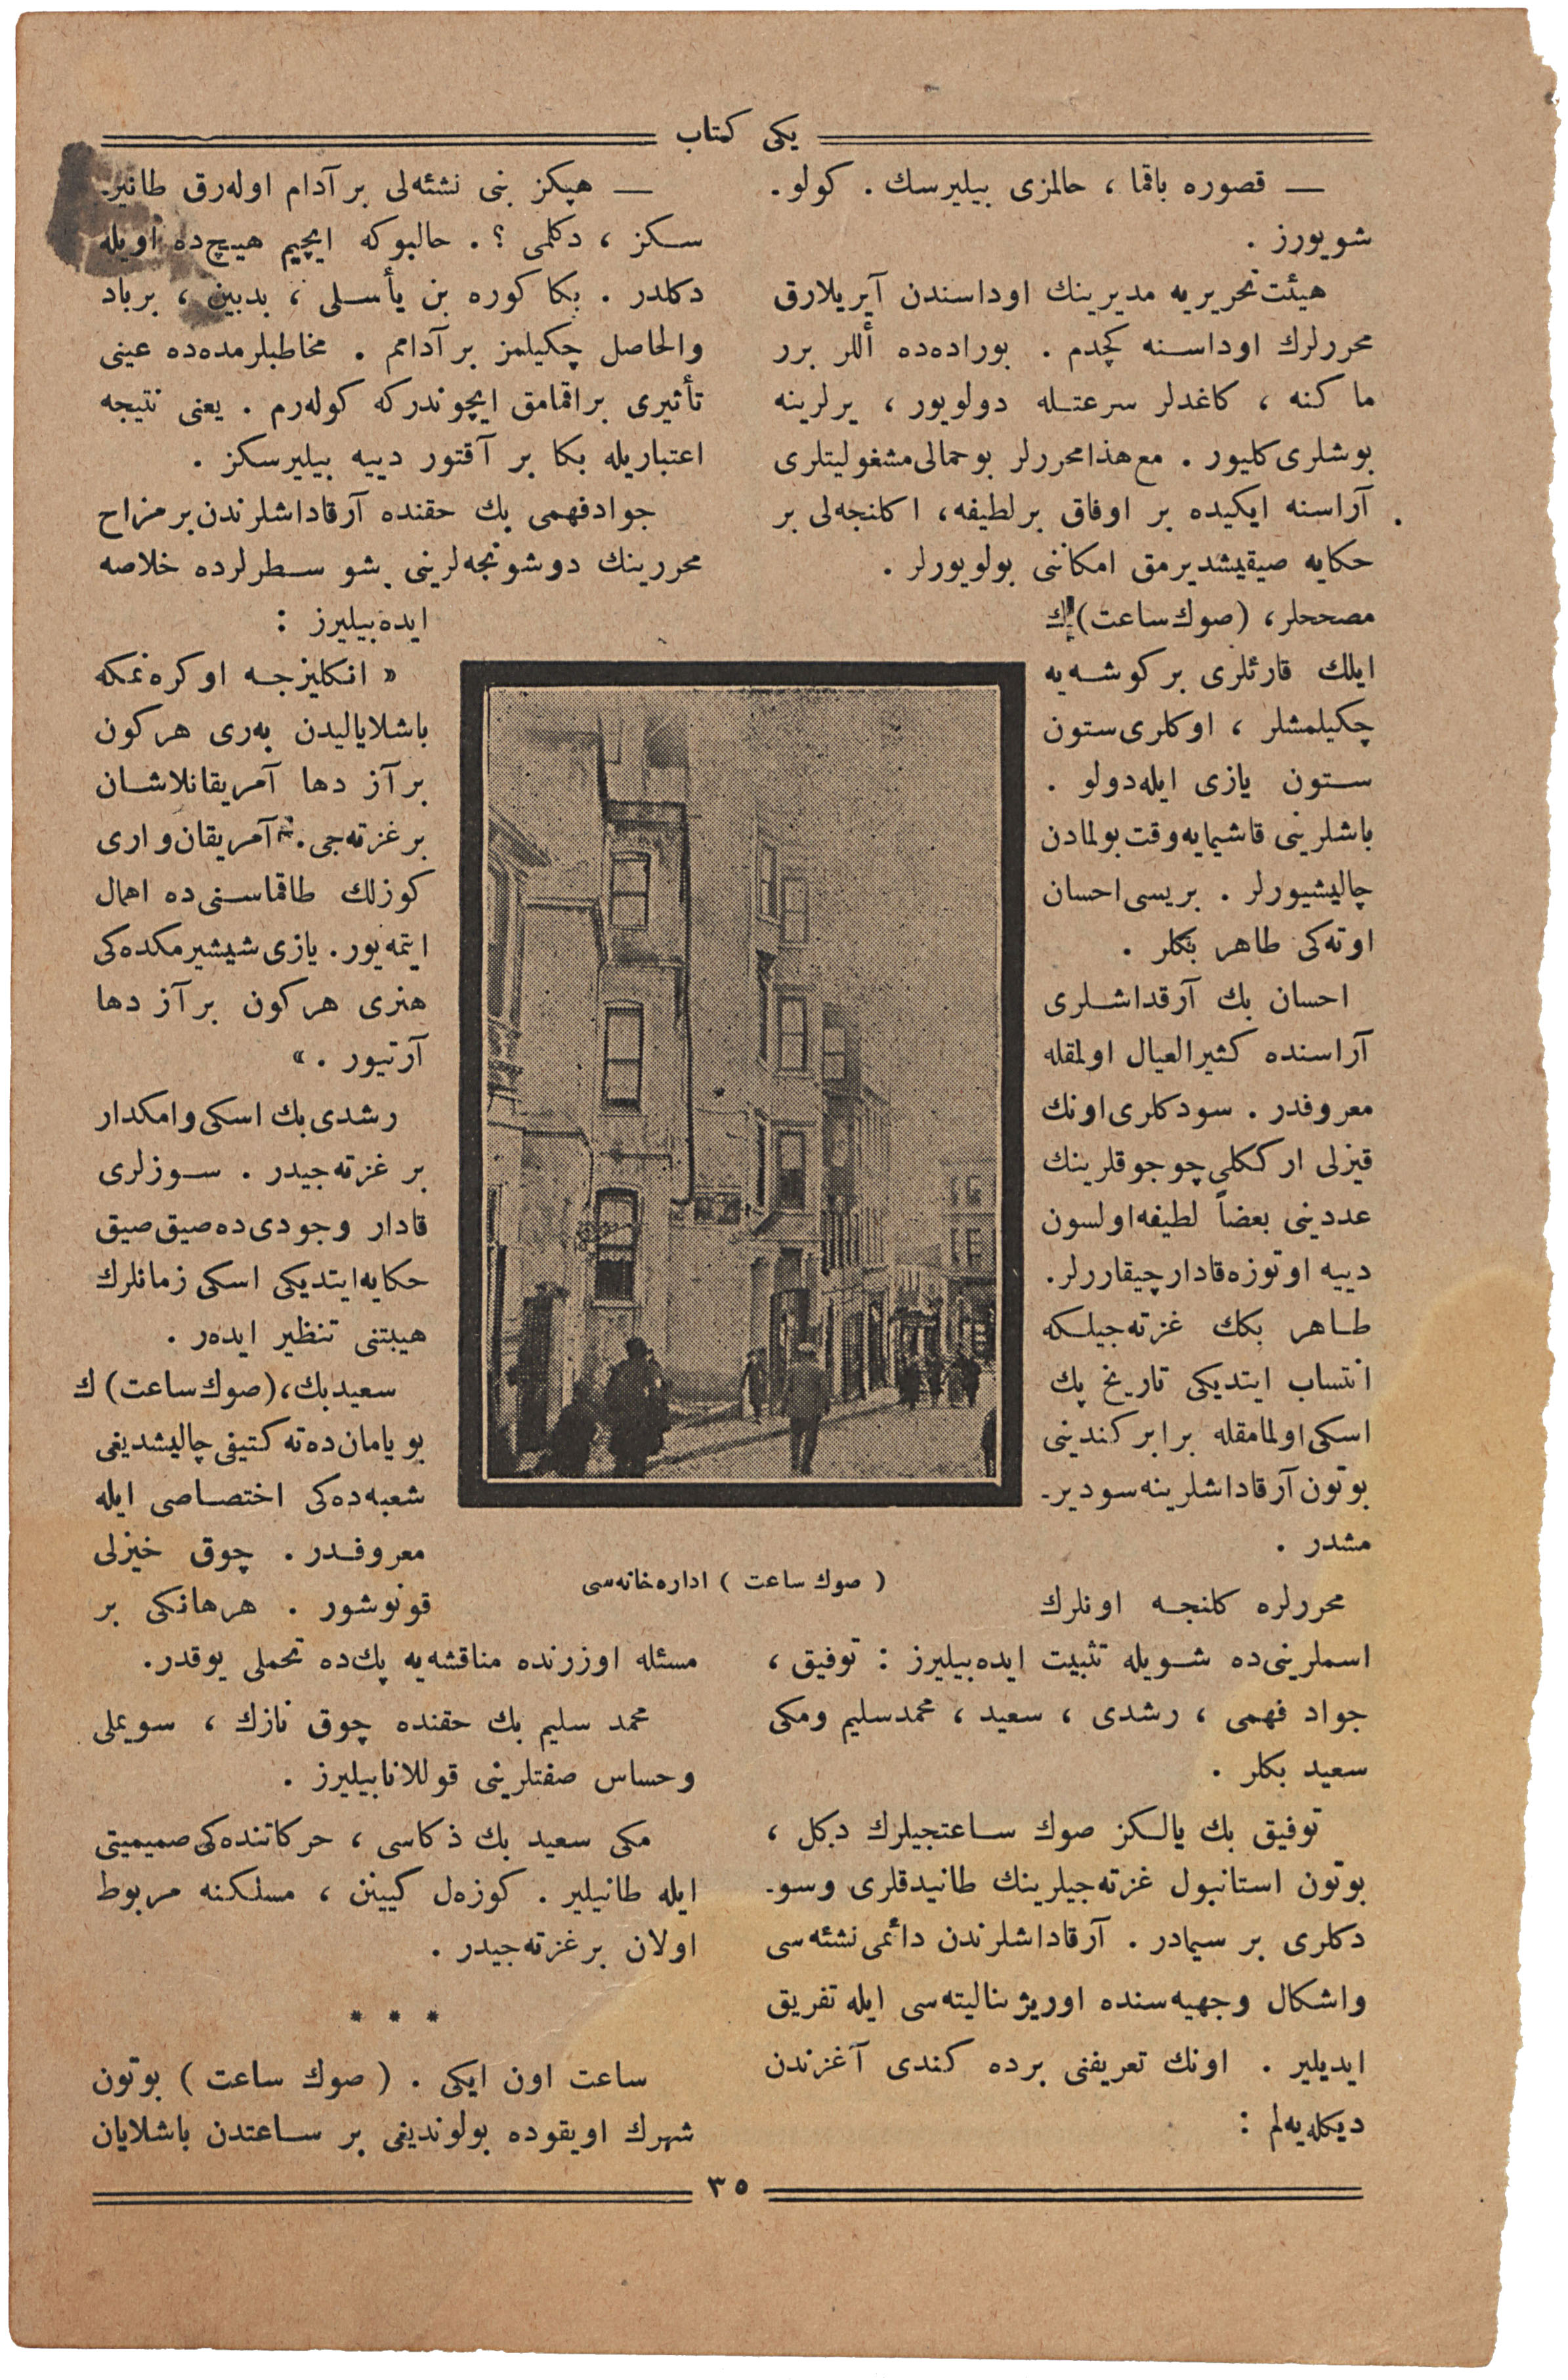 یكی كتاب
— قصوره باقما ، حالمزی بیلیرسك . كولو-
شویورز .
هیئت تحریریه مدیرینك اوداسندن آیریلارق
محررلرك اوداسنه كچدم . بوراده‌ده أللر برر
ماكنه ، كاغدلر سرعتله دولویور ، یرلرینه
بوشلری كلیور . مع هذا محررلر بوحمالی مشغولیتلری
آراسنه ایكیده بر اوفاق برلطیفه، اكلنجه‌لی بر
حكایه صیقیشدیرمق امكاننی بولویورلر .
مصححلر، (صوك ساعت) ك
ایلك قارئلری بركوشه‌یه
چكیلمشلر ، اوكلری ستون
ستون یازی ایله دولو .
باشلرینی قاشیمایه وقت بولمادن
چالیشیورلر . بریسی احسان
اوته‌كی طاهر بكلر .
احسان بك آرقداشلری
آراسنده كثیرالعیال اولمقله
معروفدر . سودكلری اونك
قیزلی ارككلی چوجوقلرینك
عددینی بعضاً لطیفه اولسون
دییه اوتوزه قادار چیقاررلر.
طاهر بكك غزته‌جیلكه
انتساب ایتدیكی تاریخ پك
اسكی اولمامقله برابر كندینی
بوتون آرقاداشلرینه سودیر-
مشدر .
محررلره كلنجه اونلرك
اسملرینی‌ده شویله تثبیت ایده‌بیلیرز : توفیق ،
جواد فهمی ، رشدی ، سعید ، محمدسلیم ومكی
سعید بكلر .
توفیق بك یالكز صوك ساعتجیلرك دكل ،
بوتون استانبول غزته‌جیلرینك طانیدقلری وسو-
دكلری بر سیمادر . آرقاداشلرندن دائمی نشئه‌سی
واشكال وجهیه‌سنده اوریژینالیته‌سی ایله تفریق
ایدیلیر . اونك تعریفنی برده كندی آغزندن
دیكله‌یه‌لم :
— هپكز بنی نشئه‌لی برآدام اوله‌رق طانیر-
سكز ، دكلمی ؟ . حالبوكه ایچیم هیچ‌ده اویله
دكلدر . بكا كوره بن یأسلی ، بدبین ، برباد
والحاصل چكیلمز برآدامم . مخاطبلرمده‌ده عینی
تأثیری براقمامق ایچوندركه كوله‌رم . یعنی نتیجه
اعتباریله بكا بر آقتور دییه بیلیرسكز .
جوادفهمی بك حقنده آرقاداشلرندن برمزاح
محررینك دوشونجه‌لرینی شو سطرلرده خلاصه
ایده‌بیلیرز :
« انكلیزجه اوكره‌نمكه
باشلایالیدن به‌ری هركون
برآز دها آمریقانلاشان
برغزته‌جی. آمریقان واری
كوزلك طاقماسنی‌ده اهمال
ایتمه‌یور. یازی شیشیرمكده‌كی
هنری هركون برآز دها
آرتیور . »
رشدی بك اسكی وامكدار
بر غزته‌جیدر . سوزلری
قادار وجودی‌ده صیق صیق
حكایه ایتدیكی اسكی زمانلرك
هیبتنی تنظیر ایده‌ر .
سعیدبك، (صوك ساعت) ك
بویامان ده‌ته‌كتیفی چالیشدیغی
شعبه‌ده‌كی اختصاصی ایله
معروفدر . چوق خیزلی
قونوشور . هرهانكی بر
مسئله اوزرنده مناقشه‌یه پك‌ده تحملی یوقدر.
محمد سلیم بك حقنده چوق نازك ، سویملی
وحساس صفتلرینی قوللانابیلیرز .
مكی سعید بك ذكاسی ، حركاتنده‌كی صمیمیتی
ایله طانیلیر . كوزه‌ل گیینن ، مسلكنه مربوط
اولان برغزته‌جیدر .
* * *
ساعت اون ایكی . ( صوك ساعت ) بوتون
شهرك اویقوده بولوندیغی بر ساعتدن باشلایان
( صوك ساعت ) اداره‌خانه‌سی
٣٥